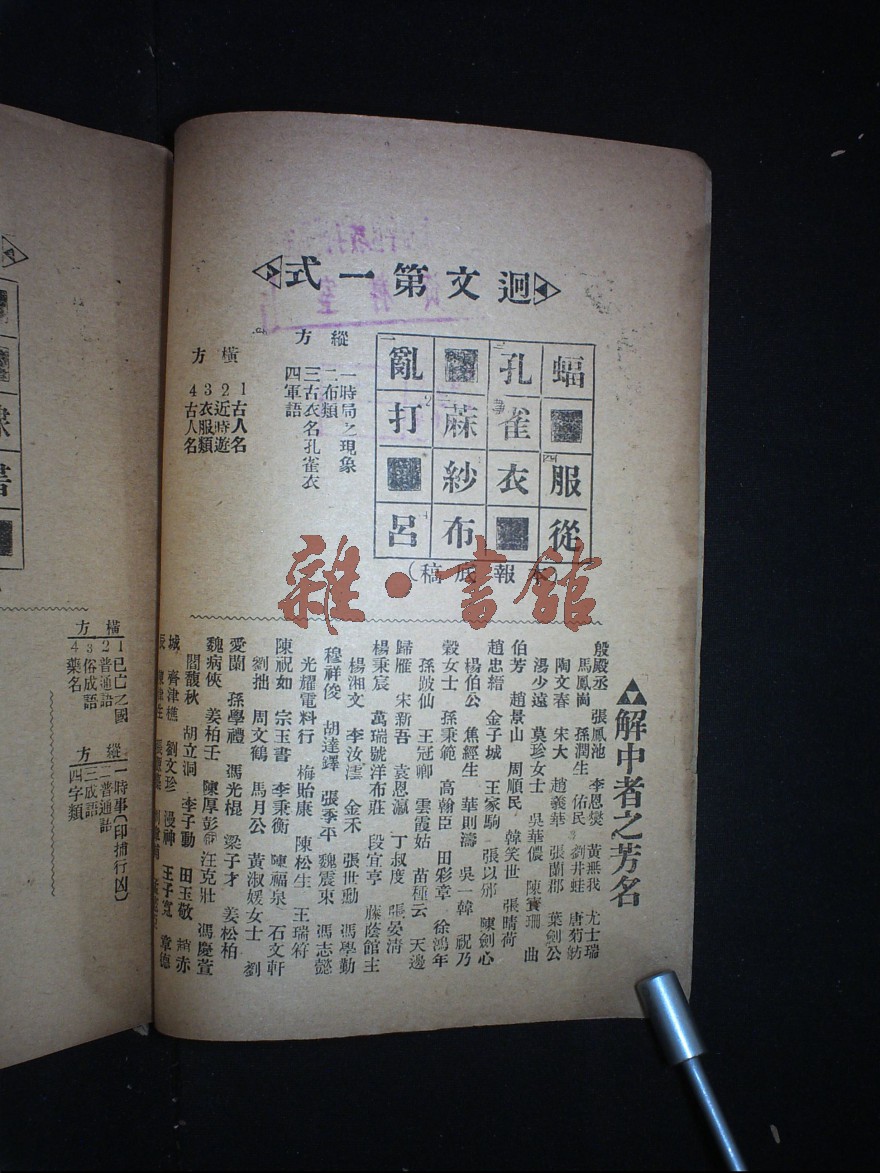 迴文第一式
蝠 服從
孔雀衣
蔴紗布
亂打 呂
(本報底稿)
縱方
一時局之現象
一布類
三古衣名孔雀衣
四軍語
橫方
1古人名
2近時遊
3衣服類
4古人名
解中者之芳名
殷殿丞 張鳳池 李恩爕 黃無我 尤士瑞
馬鳳崗 孫潤生 佑民 劉井蛙 唐菊舫
陶文春 宋大 趙義華 張蘭郡 葉劍公
湯少遠 莫珍女士 吳華儂 陳寶珊 曲
伯芳 趙景山 周順民 韓笑世 張晴荷
趙忠縉 金子城 王家駒 張以邠 陳劍心
楊伯公 焦經生 華則濤 吳一韓 祝乃
穀女士 孫秉範 高翰臣 田彩章 徐鴻年
孫跛仙 王冠卿 雲霞姑 苗種云 天邊
歸雁 宋新吾 袁恩瀛 丁叔度 張晏清
楊秉宸 萬瑞號洋布莊 段宜亭 藤陰館主
楊湘文 李汝澐 金禾 張世勳 馮學勤
穆祥俊 胡達鐸 張季平 魏震東 馮志懿
光耀電料行 梅貽康 陳松生 王瑞符
陳祝如 宗玉書 李秉衡 陳福泉 石文軒
劉拙 周文鶴 馬月公 黃淑媛女士 劉
愛蘭 孫學禮 馮光棍 梁子才 姜松柏
魏病俠 姜柏壬 陳厚彭 汪克壯 馮慶萱
閻馥秋 胡立洞 李子勳 田玉敬 趙赤
城 齊津樵 劉文珍 漫神 王子寬 章德
橫方
1已亡之國
2普通語
3俗成語
4藥名
縱方
一時事(印捕行凶)
二普通語
三成語
四字類
書
雜·書館